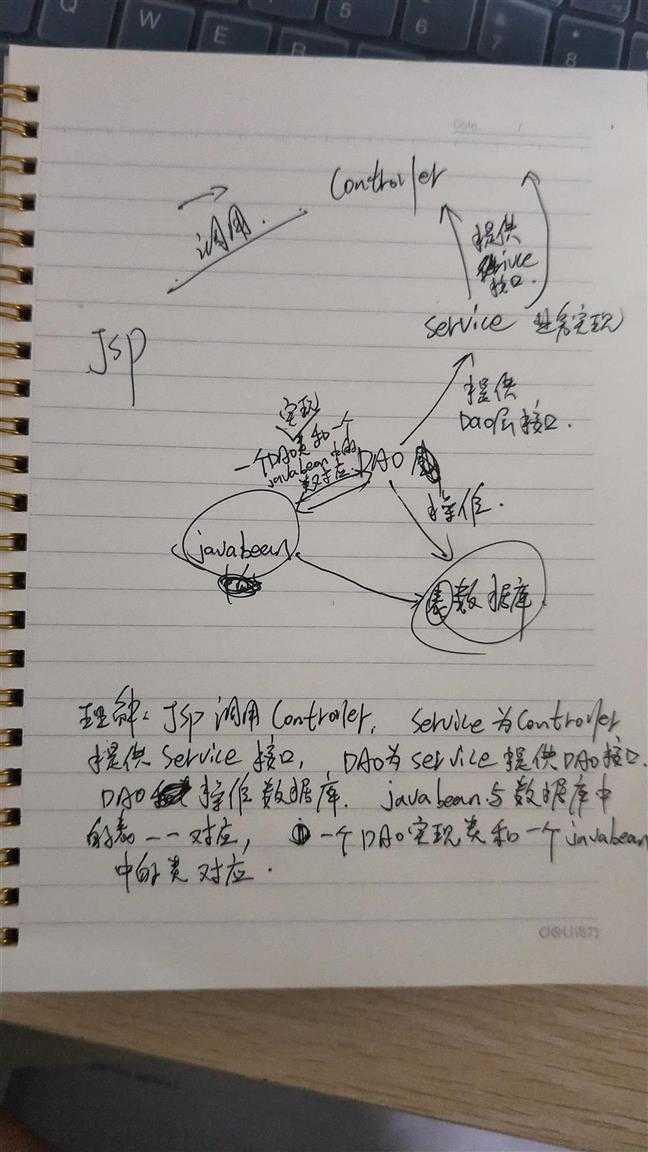 Q W E R 5 6 7 8
Date /
Controller
调用.
提供
service
接口.
Jsp
service 业务实现
提供
Dao层接口.
实现
一个DAO类和一个
javabean中的
类对应.
DAO
操作.
javabean
数据库
理解: Jsp 调用 Controller, Service为Controller
提供 Service 接口, DAO为service提供DAO接口.
DAO 操作数据库. javabean与数据库中
的表一一对应, 一个DAO实现类和一个javabean
中的类对应.